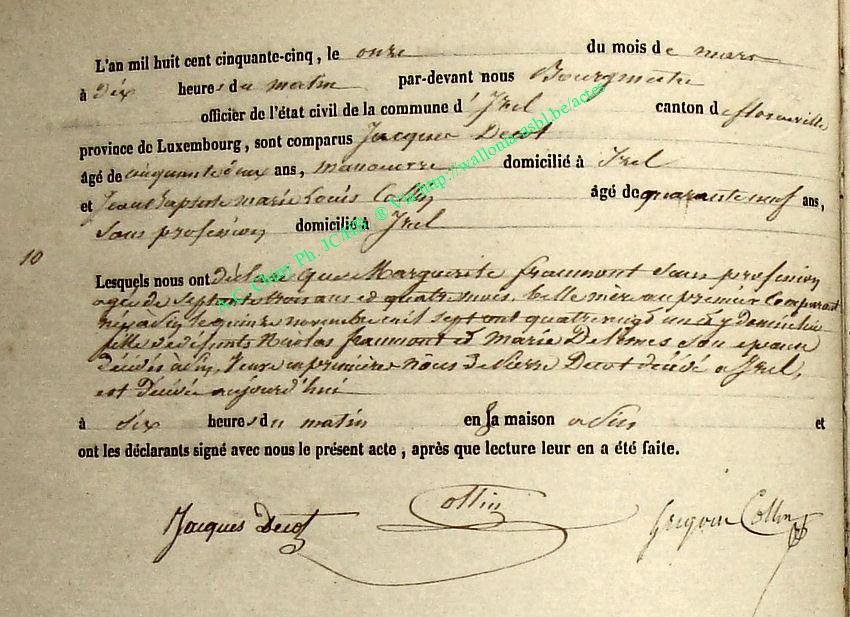 L'an mil huit cent cinquante-cinq, le onze du mois de mars
à dix heures du matin par-devant nous Bourgmestre
officier de l'état civil de la commune d'Izel canton de florenville
province de Luxembourg, sont comparus Jacques Decot
âgé de cinquante deux ans, manoeuvre domicilié à Izel
et Jean Baptiste marie Louis Collin âgé de quarante neuf ans,
Sans profession domicilié à Izel
10
Lesquels nous ont déclaré que Marguerite fraumont Sans profession
agée de Septante trois ans et quatre mois, belle mère au premier Comparant
née à le quinze novembre mil sept cent quatre vingt un et y domiciliée
fille de défunts Nicolas fraumont et Marie Son epoux
décédés à Veuve en première nôces de Pierre Decot décédé a Izel,
est décédée aujourd'hui
à Six heures du matin en Sa maison a et
ont les déclarants signé avec nous le présent acte, après que lecture leur en a été faite.
Jacques Decot Collin Collin
A.C. Ph. JC.HB. ® Via http://wallonia.asbl.be/actes